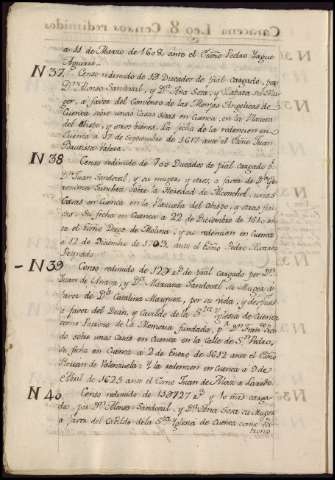 Caracena Leg 8 Censos redimidos
a 11 de Marzo de 1602 ante el Esno Pedro Yague
Aguirre
N 37 Censo redimido de 18 Ducados de pral cargado por
Dn Alonso Sandoval, y Da Ana Sosa, y
a favor del Convento de las Monjas Angelicas de
Cuenca sobre unas Casas sitas en Cuenca, en la Plazuela
del Obispo, y otros bienes. La fecha de la redencion en
Cuenca a 17 de Septiembre de 1617 ante el Esno Juan
Bautista Valera
N 38 Censo redimido de 750 Ducados de pral cargado
Dn Juan Sandoval, y su muger y otros, a favor de Da
sobre la Heredad de Monchel, unas
Casas en Cuenca en la Plazuela del Obispo, y otras
Su fecha en Cuenca a 22 de Diciembre de
ante el Esno Diego de Molina; y su redencion en Cuenca
a 12 de Diciembre de 1703, ante el Esno Pedro
N 39 Censo redimido de de pral cargado por Dn
Juan de y Da Mariana Sandoval su Muger, a
favor de Da Catalina Marquez, por su vida, y despues
a favor del Dean, y Cavildo de la Sta Yglesia de Cuenca
como Patrono de la Memoria fundada, pr Dn
sobre unas Casas en Cuenca en la calle de Sn Pedro,
su fecha en Cuenca a 2 de Enero de 1612 ante el Esno
de Valenzuela: Y la redencion en Cuenca a 9 de
Abril de 1625 ante el Esno Juan de
N 40 Censo redimido de 138727 y 1/2 mrs carga-
do, por Dn Alonso Sandoval, y Da Ana Sosa su Muger
a favor del Cabildo de la Sta Yglesia de Cuenca como Pa-
trono